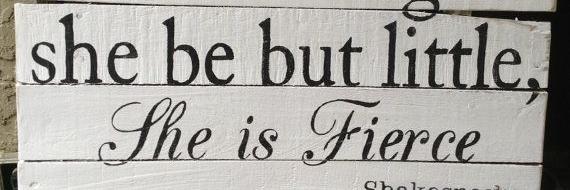 she be but little,
She is Fierce